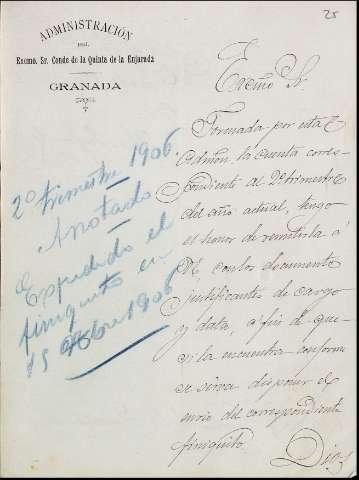 25
ADMINISTRACIÓN
DEL
Excmo. Sr. Conde de la Quinta de la Enjarada
GRANADA
2º trimestre 1906
Anotado
Expedido el
finiquito en
15 Obre 1906
Excmo Sr.
Formada por esta
Admon. la cuenta corres-
pondiente al 2º trimestre
del año actual, tengo
el honor de remitirla á
VE. con los documentos
justificantes de cargo
y data, a fin de que
si la encuentra conforme
se sirva disponer el
envio del correspondiente
finiquito.
Dios